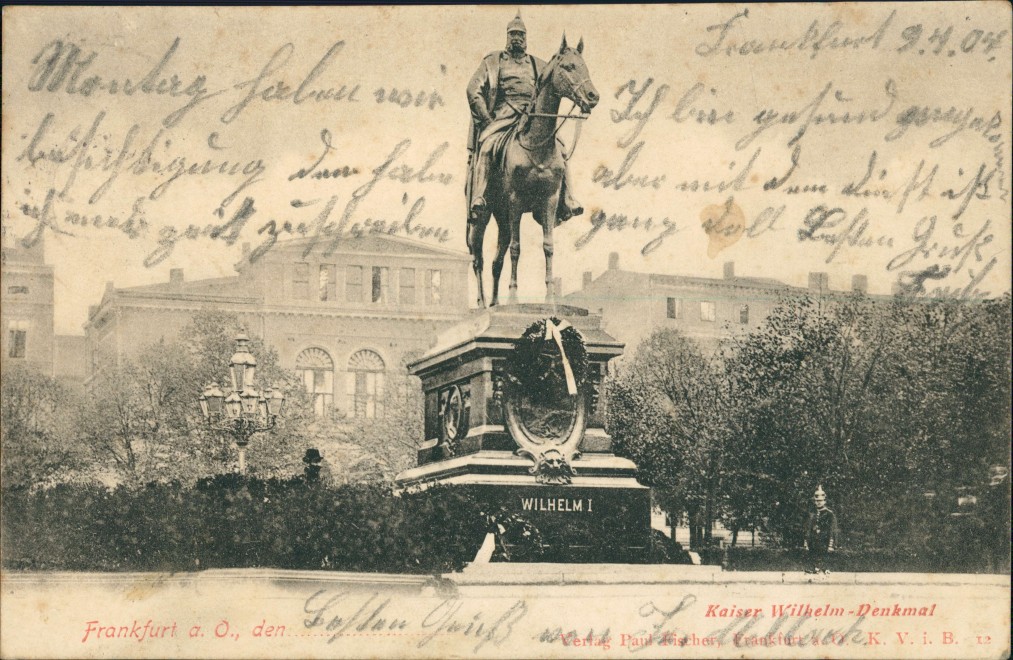 Frankfurt 9.4.04.
Montag haben wir
besichtigung dan habe
ich mehr zeit zu schreiben
Ich bin gesund
aber mit dem durst ist
ganz doll Besten Gruß
WILHELM I
Kaiser Wilhelm-Denkmal
Frankfurt a. O., den
Besten Gruß von
Verlag Paul Fischer, Frankfurt a. O. K. V. i. B. 12